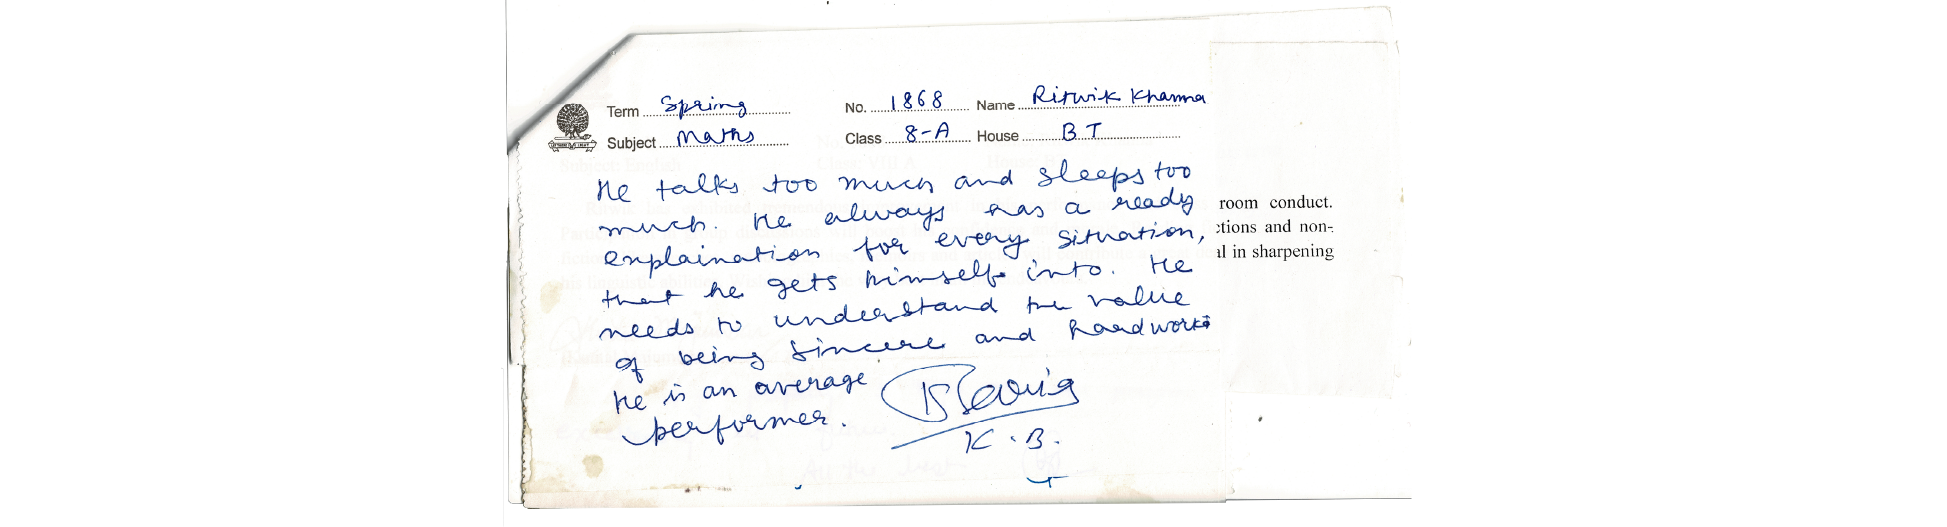 Term Spring No. 1868 Name Ritwik Khanna
Subject Maths Class 8-A House B T
He talks too much and sleeps too
much. He always has a ready
explaination for every situation,
that he gets himself into. He
needs to understand the value
of being sincere and hardwork
He is an average
performer.
K.B.
room conduct.
ctions and non-
al in sharpening